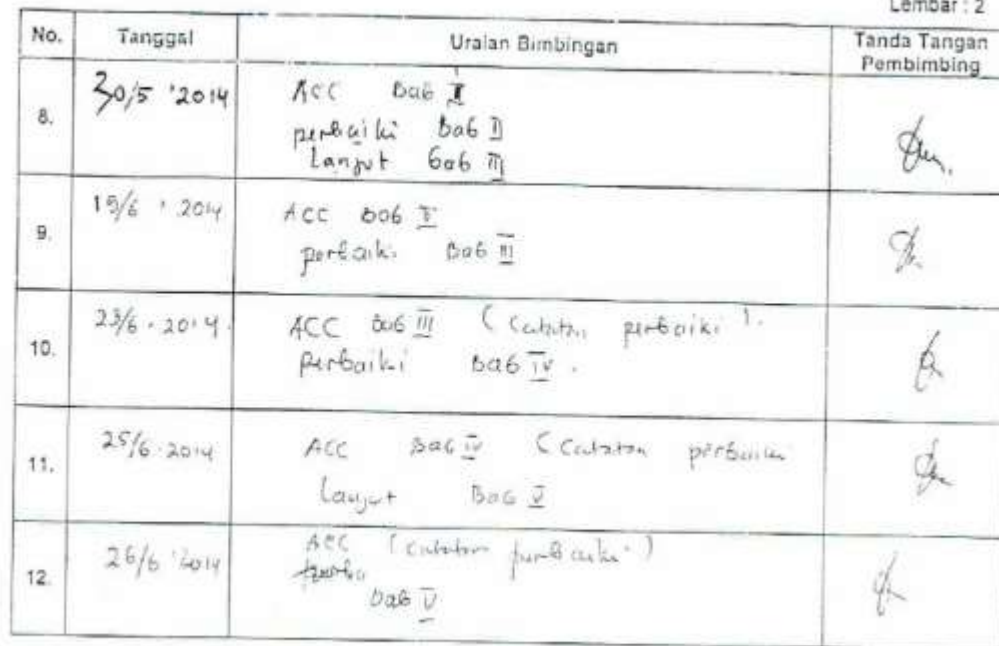 Lembar : 2
No. Tanggal Uraian Bimbingan Tanda Tangan Pembimbing
8. 30/5 '2014 ACC Bab II
perbaiki Bab II
Lanjut Bab III
9. 19/6 ' 2014 ACC Bab II
perbaiki Bab III
10. 23/6 . 2014 . ACC Bab III ( Catatan perbaiki ) .
Perbaiki Bab IV .
11. 25/6 . 2014 ACC Bab IV ( Catatan perbaikan
lanjut Bab V
12. 26/6 '2014 ACC ( Catatan perbaiki )
Bab V